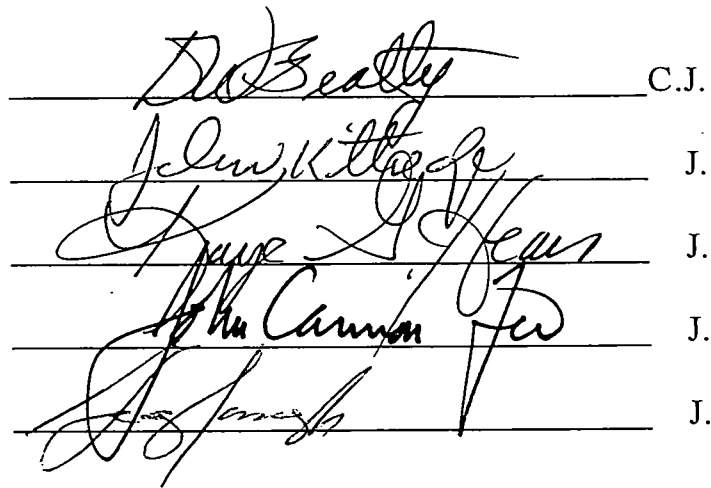 DWBeatty C.J.
John W. Kittredge J.
Kaye G Hearn J.
John Cannon Few J.
J.